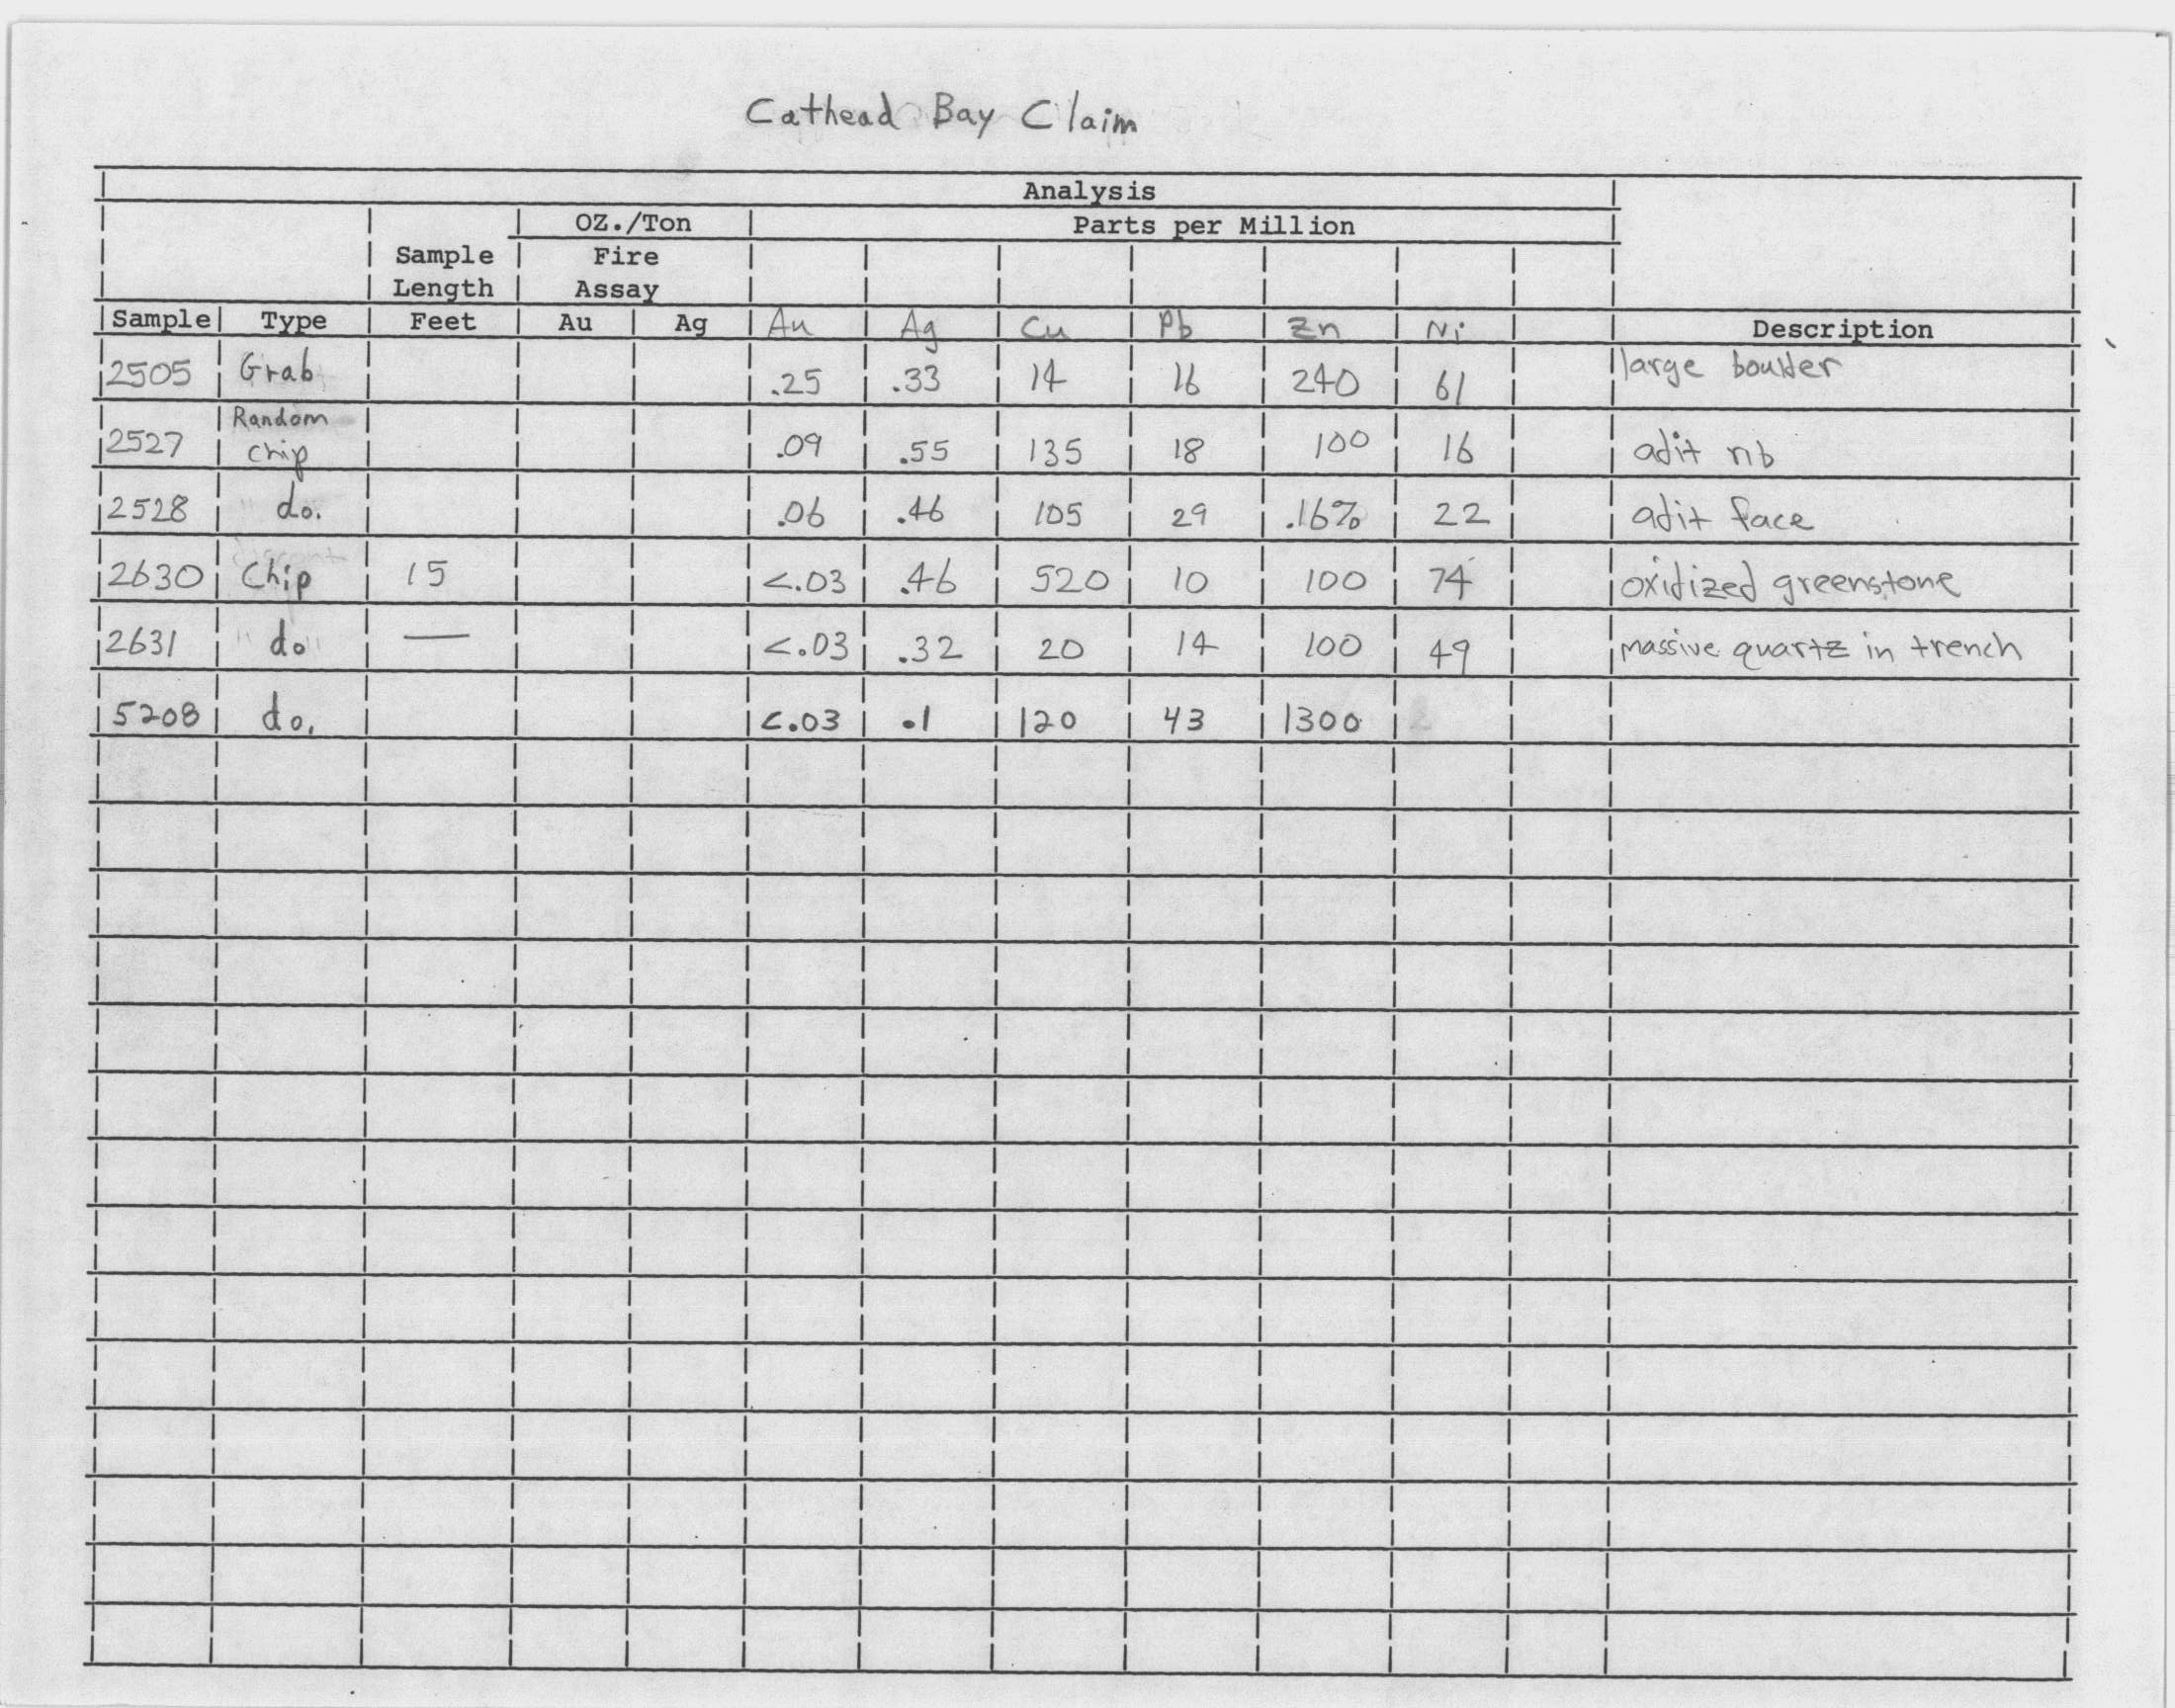 Cathead Bay Claim
Analysis
OZ./Ton Parts per Million
Sample Fire
Length Assay
Sample Type Feet Au Ag Au Ag Cu Pb Zn Ni Description
2505 Grab .25 .33 14 16 240 61 large boulder
Random
2527 chip .09 .55 135 18 100 16 adit rib
2528 do. .06 .46 105 29 .16% 22 adit face
2630 Chip 15 <.03 .46 520 10 100 74 oxidized greenstone
2631 " do " — <.03 .32 20 14 100 49 massive quartz in trench
5208 do. <.03 .1 120 43 1300